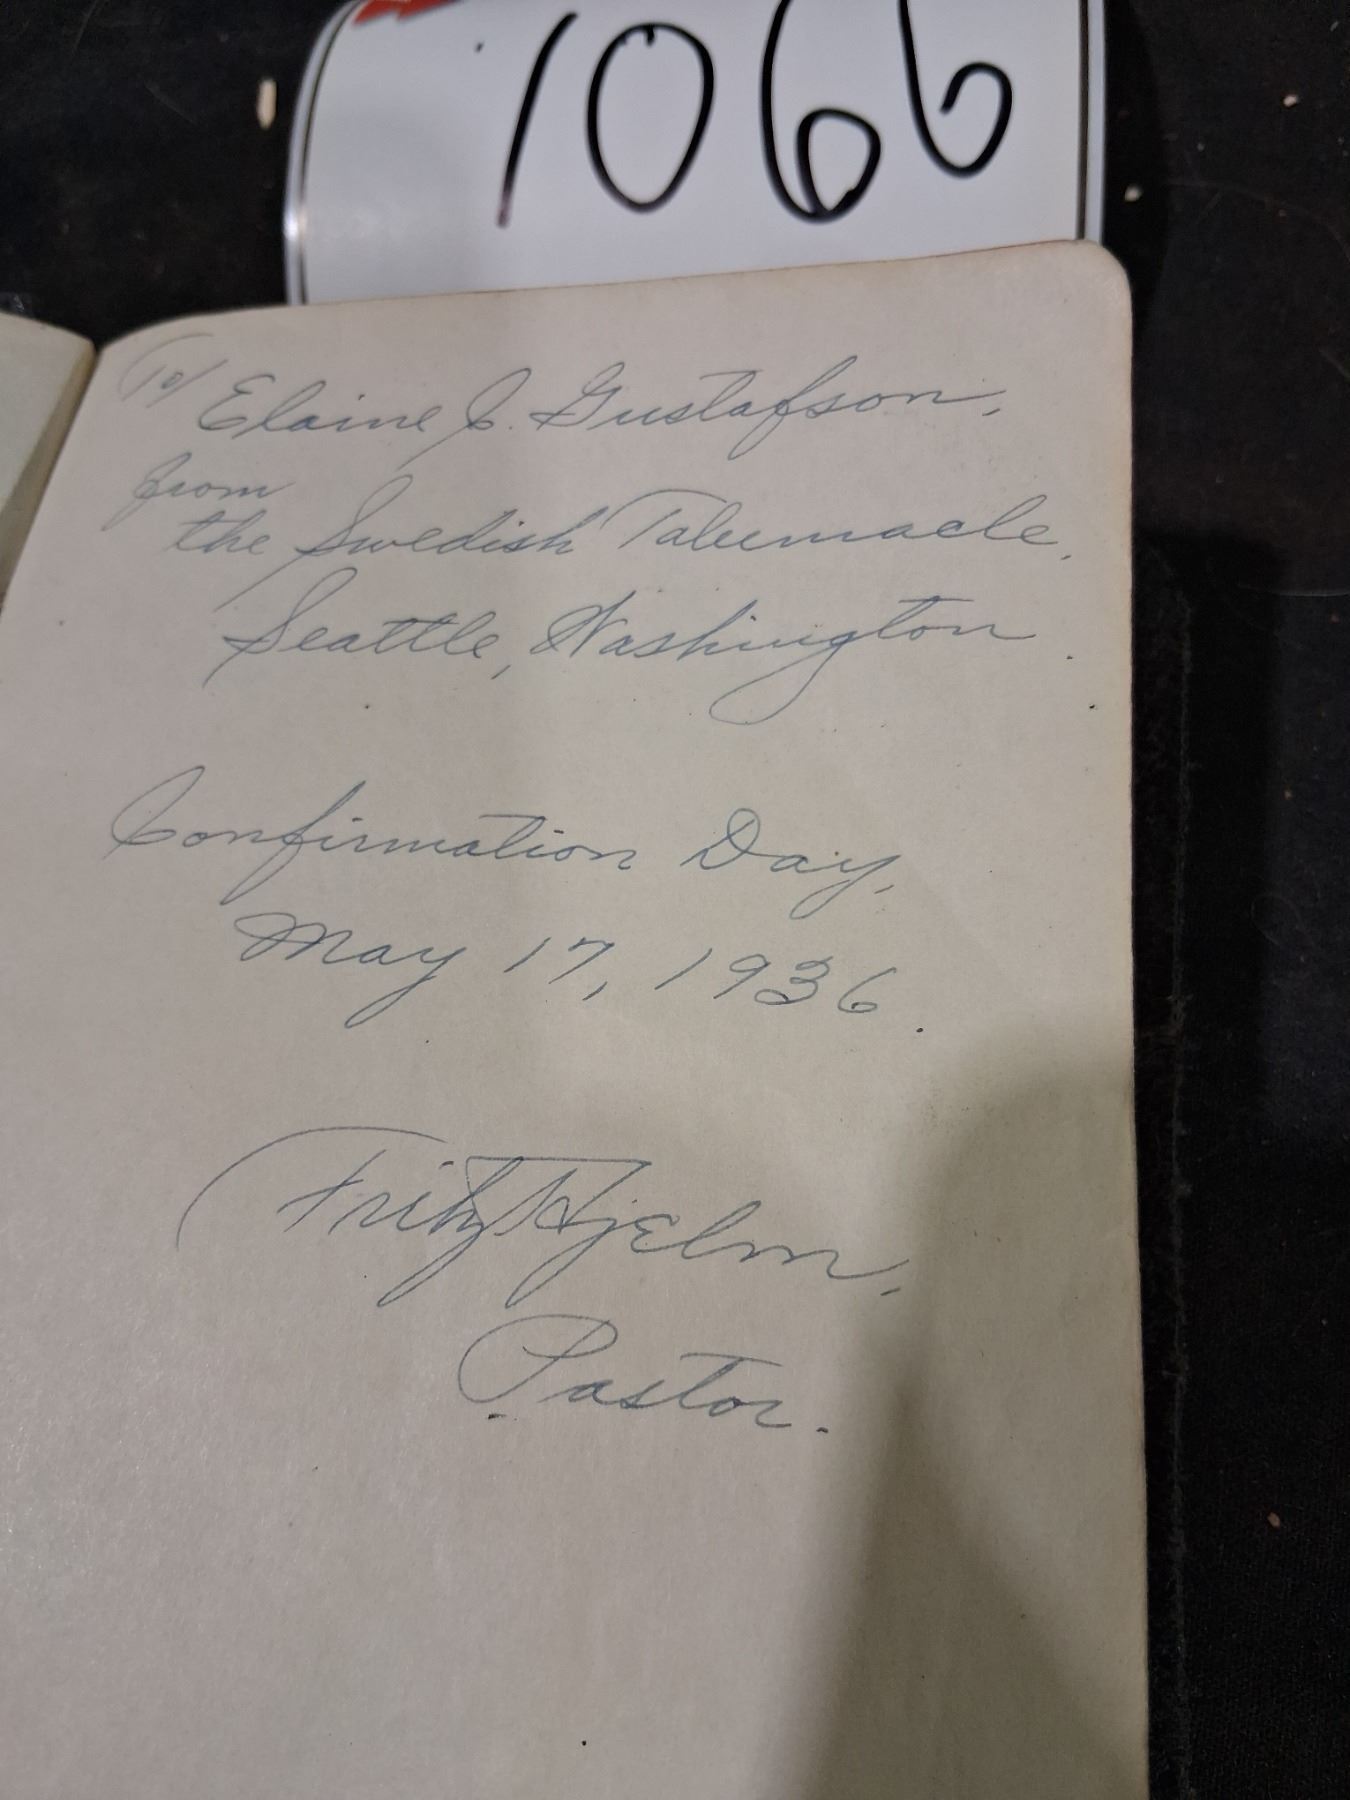 1066
To/ Elaine C. Gustafson,
from
the Swedish Tabernacle,
Seattle, Washington.
Confirmation Day,
May 17, 1936.
Fritz Hjelm,
Pastor.